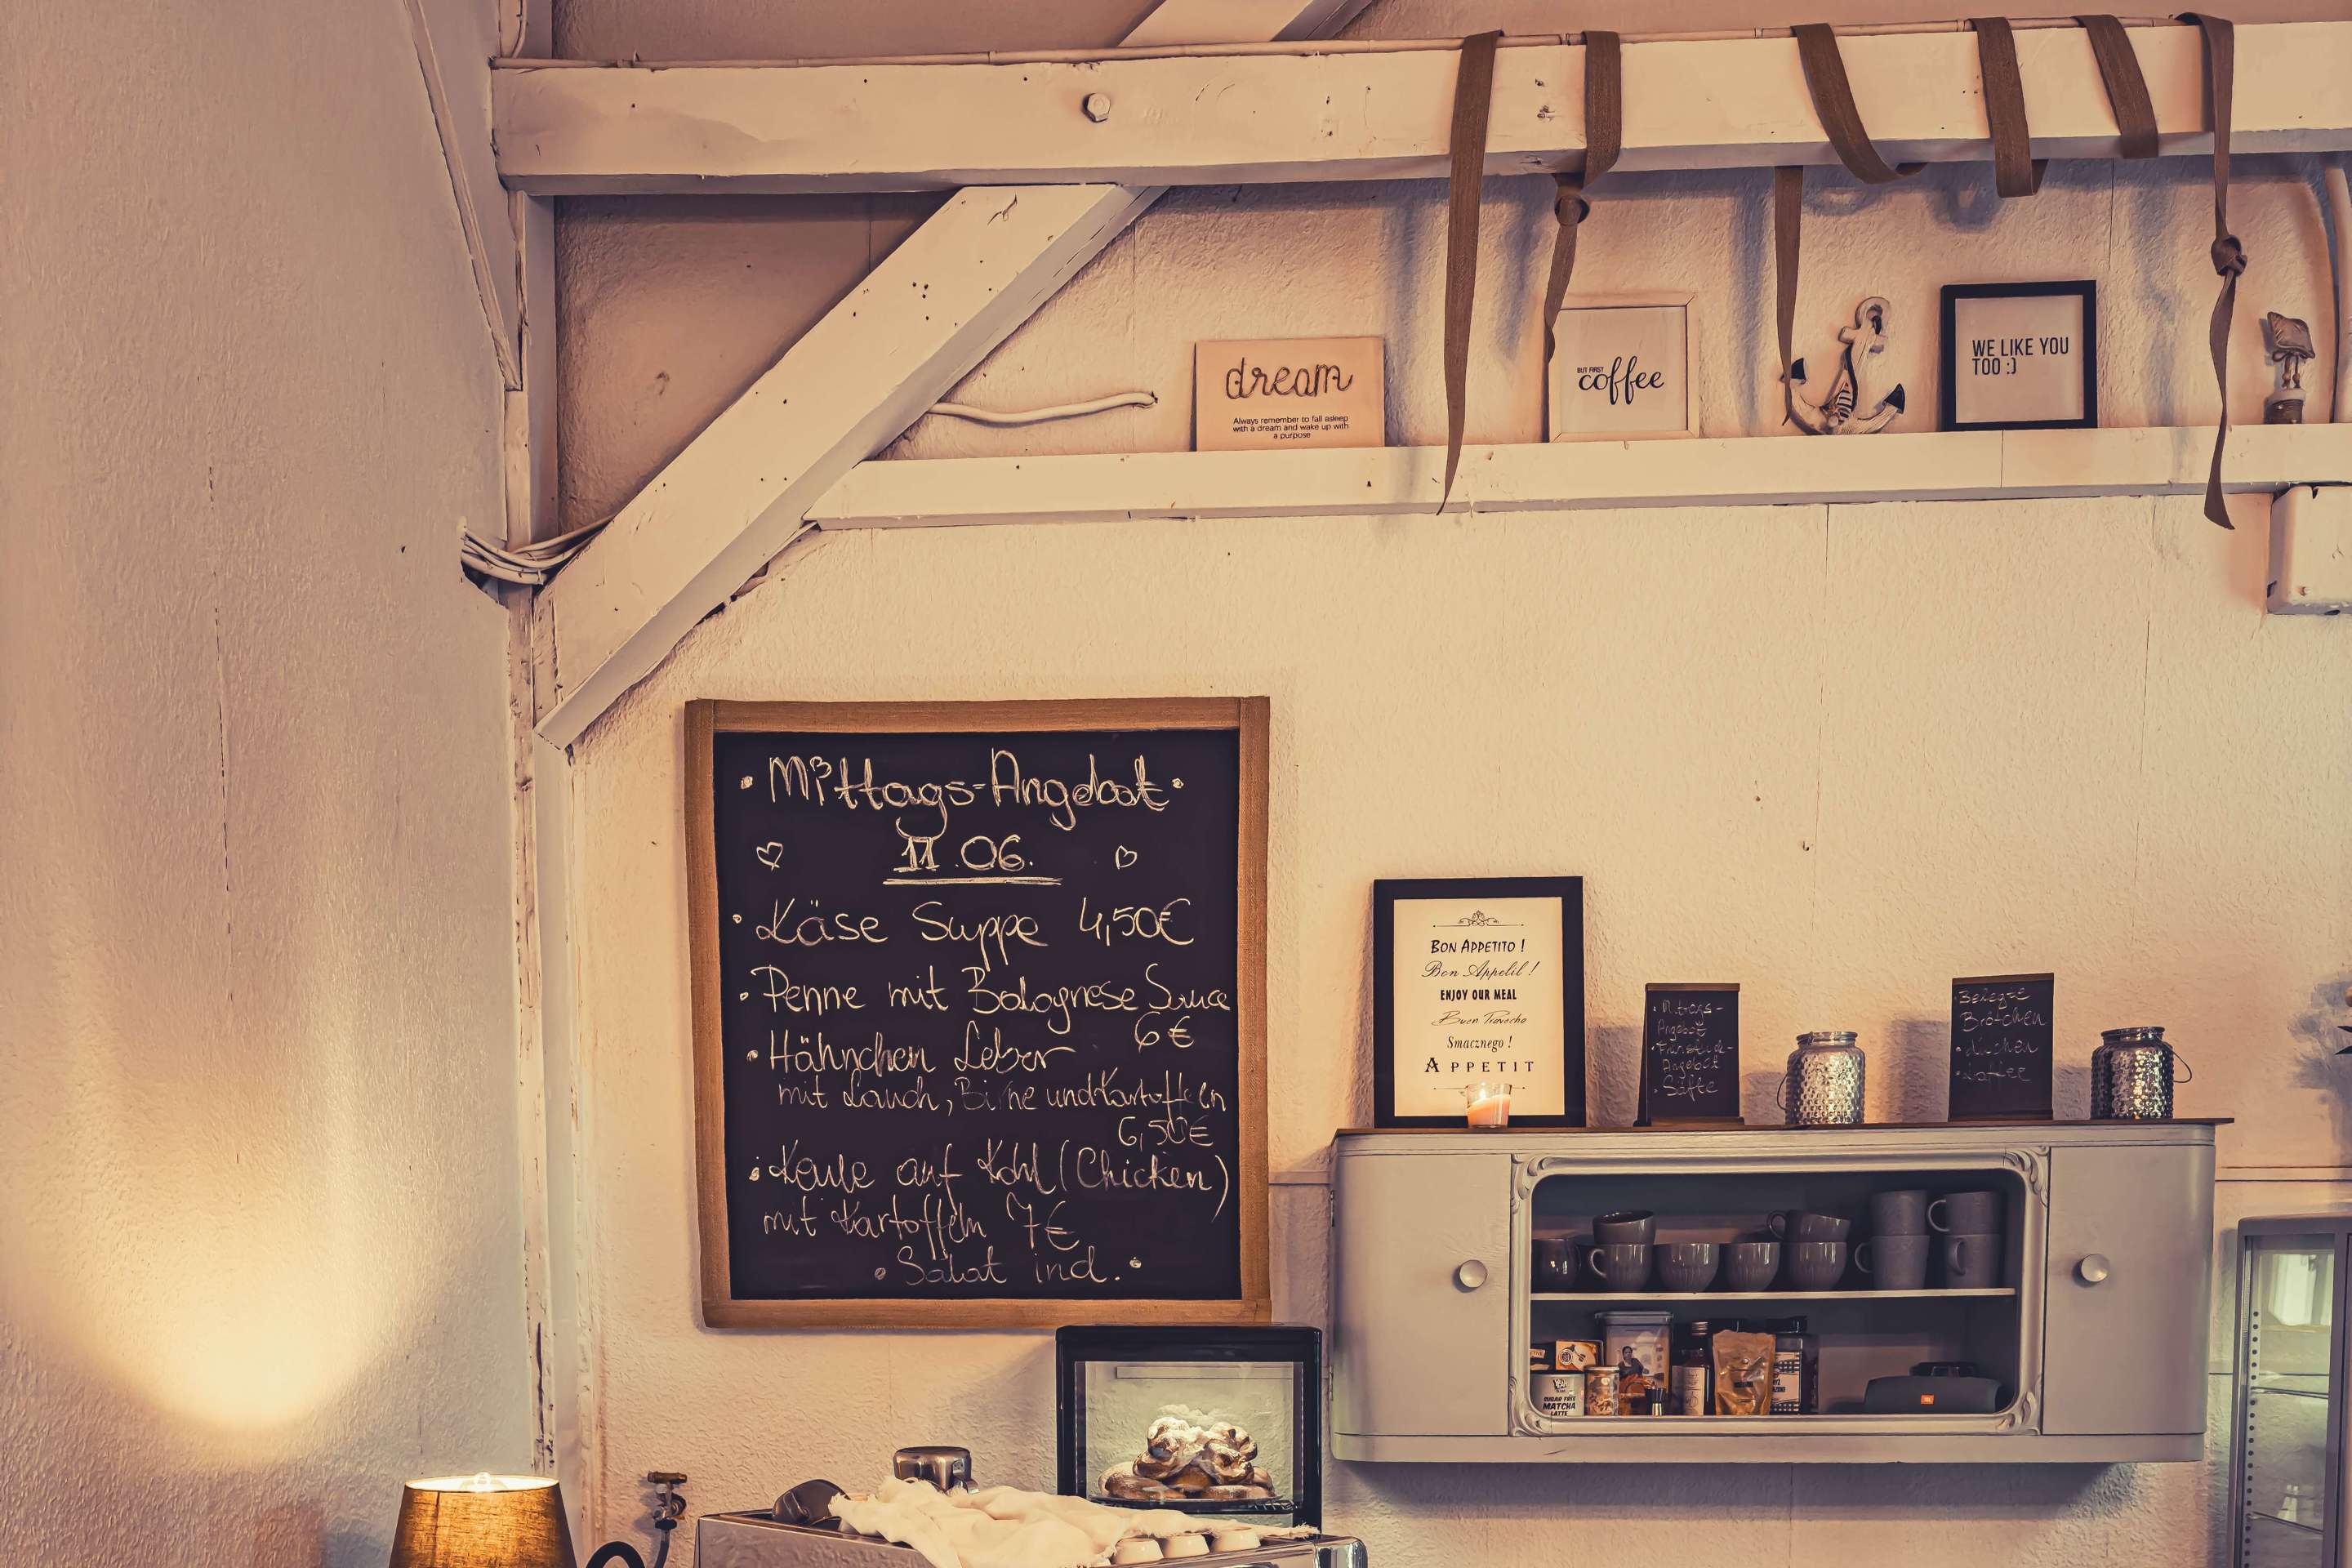 dream
Always remember to fall asleep
with a dream and wake up with
a purpose
BUT FIRST
coffee
WE LIKE YOU
TOO :)
• Mittags-Angebot •
♡ 11.06. ♡
• Käse Suppe 4,50€
• Penne mit Bolognese Sauce
6€
• Hähnchen Leber
mit Lauch, Birne und Kartoffeln
6,50€
• Keule auf Kohl (Chicken)
mit Kartoffeln 7€
• Salat ind. •
BON APPETITO !
Bon Appetit !
ENJOY OUR MEAL
Buen Provecho
Smacznego !
APPETIT
• Mittags-
Angebot
• Frühstück-
Angebot
• Säfte
Belegte
Brötchen
• Kuchen
• Kaffee
SUGAR FREE
MATCHA
LATTE
JBL